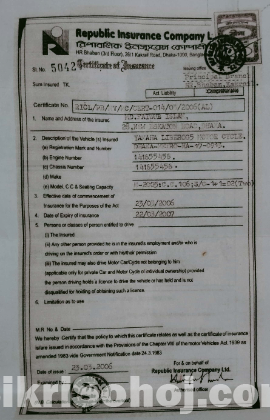 Republic Insurance Company L
রিপাবলিক ইনস্যুরেন্স কোম্পানী
HR Bhaban (3rd Floor), 26/1 Kakrail Road, Dhaka-1000, Bangladesh
Sl. No. 5042 Certificate of Insurance
Issuing office
Sum Insured TK.
Principal Branch
Act Liability
Comprehensive
Certificate No.
1. Name and Address of the insured
2. Description of the Vehicle (s) Insured
a) Registration Mark and Number
b) Engine Number
c) Chassis Number
d) Make
e) Model, C.C & Seating Capacity
3. Effective date of commencement of
Insurance for the Purposes of the Act
23/03/2006
4. Date of Expiry of Insurance
22/03/2007
5. Persons or classes of person entitled to drive
(i) The Insured
(ii) Any other person provided he is in the insured's employment and/or who is
driving on the insured's order or with his/her permission
(iii) The insured may also drive Motor Car/Cycle not belonging to him
(applicable only for private Car and Motor Cycle of individual ownership) provided
the person driving holds a licence to drive the vehicle or has held and is not
disqualified for holding of obtaining such a licence.
6. Limitation as to use
M.R. No & Date
We hereby Certify that the policy to which this certificate relates as well as the certificate of insurance
issued in accordance with the Provisions of the Chapter VIII of the motor Vehicles Act. 1939 an
amended 1983 vide Government Notification date 24.3.1983
For & on behalf of
Republic Insurance Company Ltd.
Date of issue 23.03.2006
ikriSohoj.com